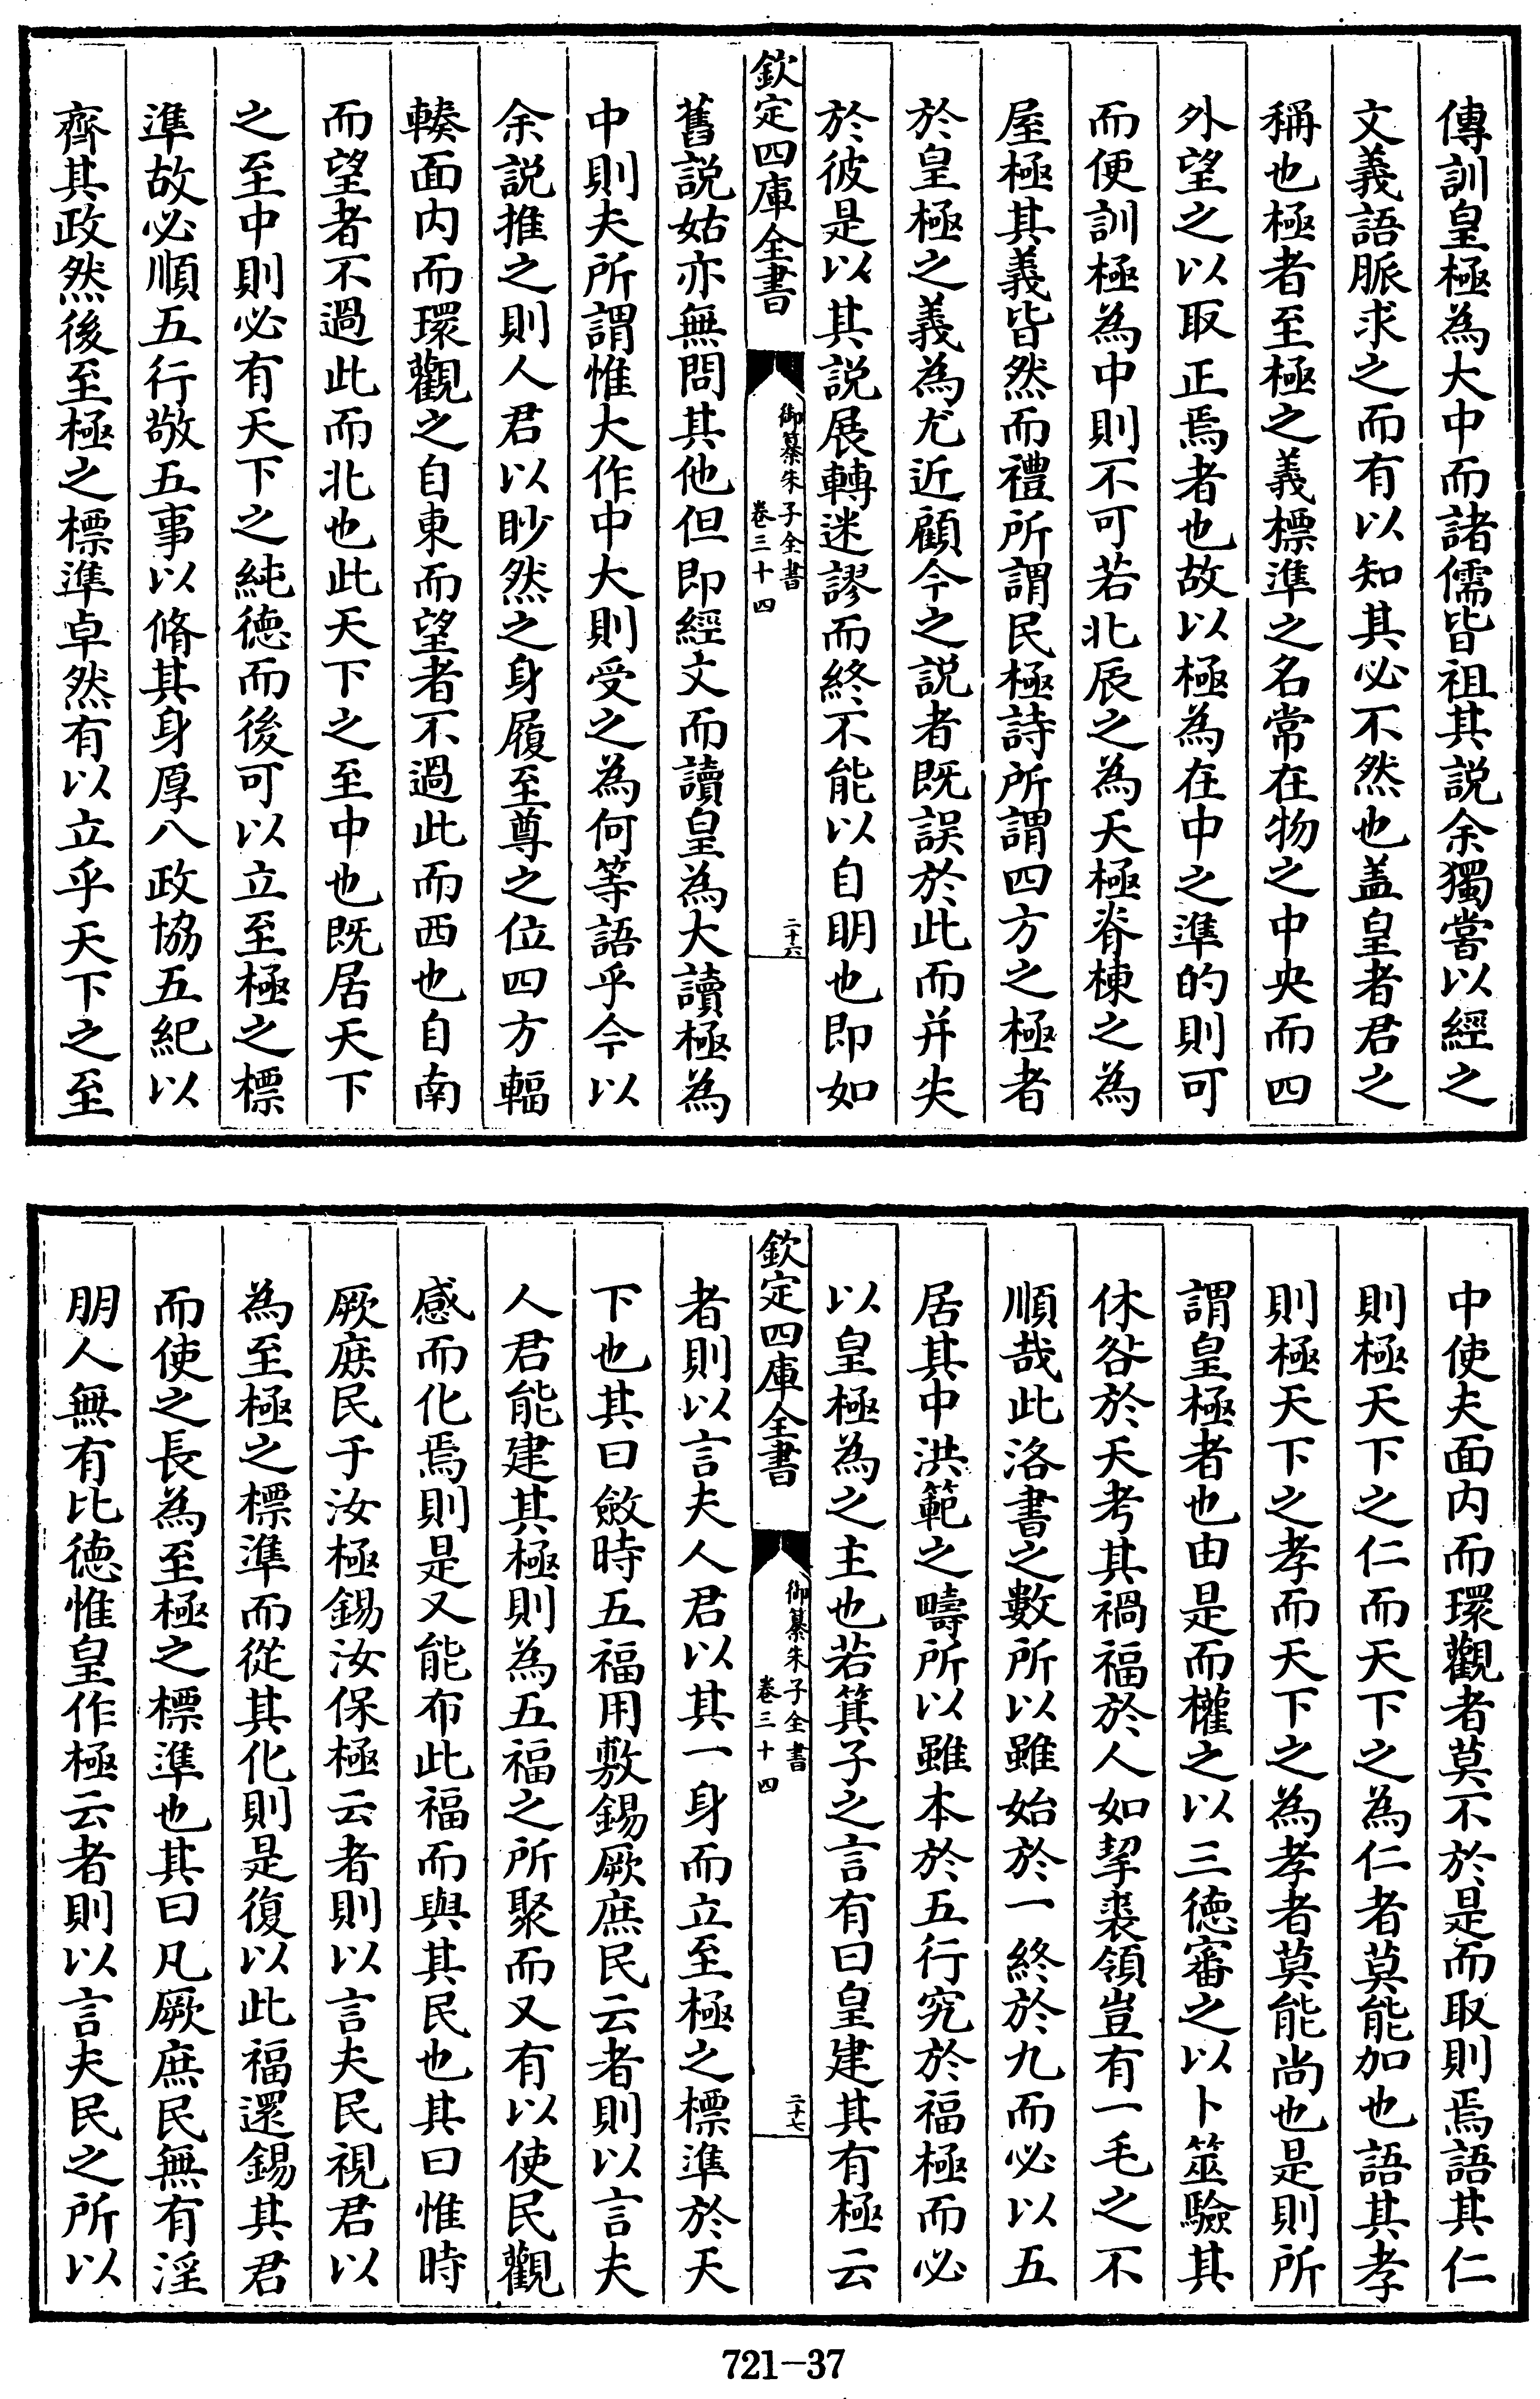 傳訓皇極為大中而諸儒皆祖其説余獨嘗以經之
文義語脈求之而有以知其必不然也盖皇者君之
稱也極者至極之義標準之名常在物之中央而四
外望之以取正焉者也故以極為在中之準的則可
而便訓極為中則不可若北辰之為天極脊棟之為
屋極其義皆然而禮所謂民極詩所謂四方之極者
於皇極之義為尤近顧今之説者既誤於此而并失
於彼是以其説展轉迷謬而終不能以自明也即如
欽定四庫全書
御纂朱子全書
卷三十四
二十六
舊説姑亦無問其他但即經文而讀皇為大讀極為
中則夫所謂惟大作中大則受之為何等語乎今以
余説推之則人君以眇然之身履至尊之位四方輻
輳面内而環觀之自東而望者不過此而西也自南
而望者不過此而北也此天下之至中也既居天下
之至中則必有天下之純德而後可以立至極之標
準故必順五行敬五事以脩其身厚八政協五紀以
齊其政然後至極之標準卓然有以立乎天下之至
中使夫面内而環觀者莫不於是而取則焉語其仁
則極天下之仁而天下之為仁者莫能加也語其孝
則極天下之孝而天下之為孝者莫能尚也是則所
謂皇極者也由是而權之以三德審之以卜筮驗其
休咎於天考其禍福於人如挈裘領豈有一毛之不
順哉此洛書之數所以雖始於一終於九而必以五
居其中洪範之疇所以雖本於五行究於福極而必
以皇極為之主也若箕子之言有曰皇建其有極云
欽定四庫全書
御纂朱子全書
卷三十四
二十七
者則以言夫人君以其一身而立至極之標準於天
下也其曰斂時五福用敷錫厥庶民云者則以言夫
人君能建其極則為五福之所聚而又有以使民觀
感而化焉則是又能布此福而與其民也其曰惟時
厥庶民于汝極錫汝保極云者則以言夫民視君以
為至極之標準而從其化則是復以此福還錫其君
而使之長為至極之標準也其曰凡厥庶民無有淫
朋人無有比德惟皇作極云者則以言夫民之所以
721-37